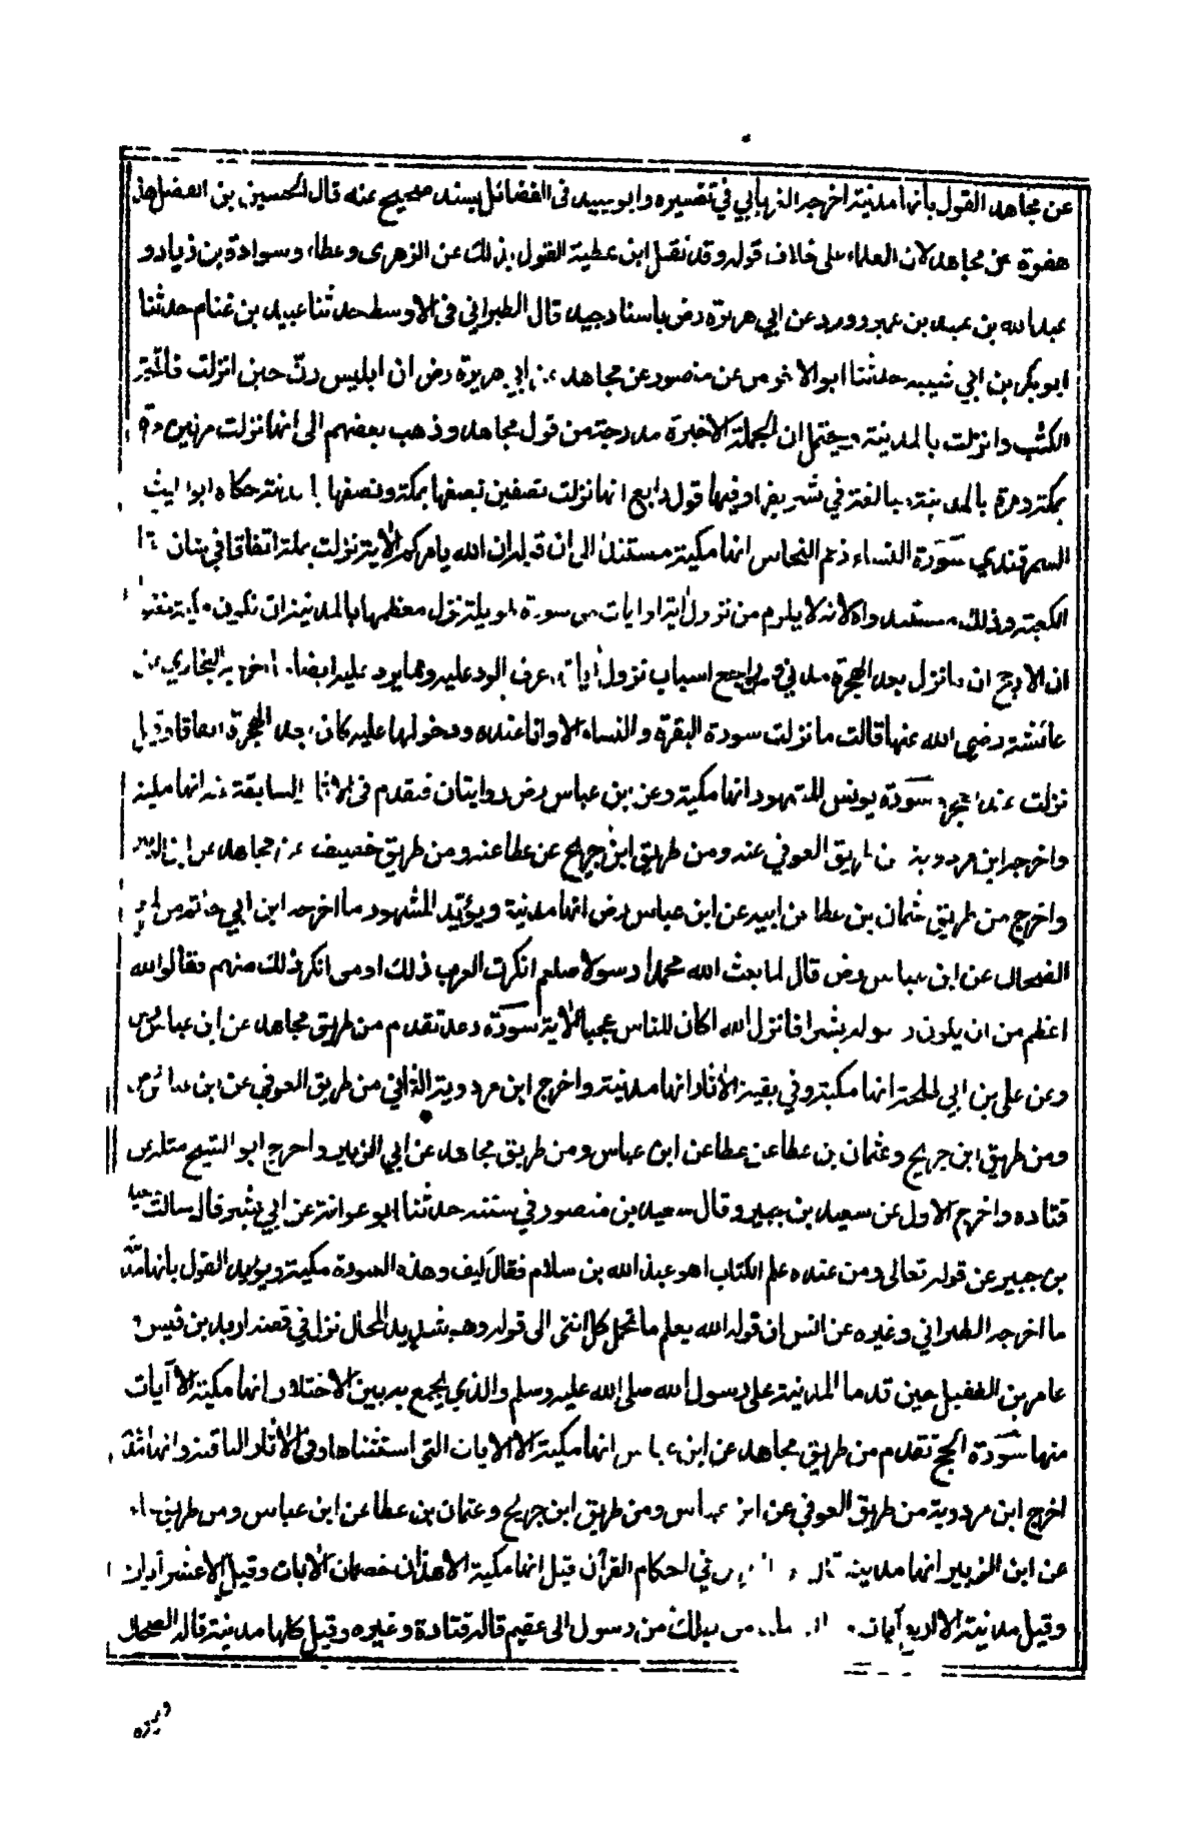 عن مجاهد القول بأنها مدنية اخرجه الفريابي في تفسيره وابو عبيد في الفضائل بسند صحيح عنه قال الحسين بن الفضل هذه
هفوة من مجاهد لان العلماء على خلاف قوله وقد نقل ابن عطية القول بذلك عن الزهرى وعطاء وسوادة بن زياد و
عبد الله بن عبيد بن عمير وورد عن ابي هريرة رض باسناد جيد قال الطبراني في الاوسط حدثنا عبيد بن غنام حدثنا
ابو بكر بن ابي شيبه حدثنا ابو الاحوص عن منصور عن مجاهد عن ابي هريرة رض ان ابليس رنّ حين انزلت فاتحة
الكتب وانزلت بالمدينة ويحتمل ان الجملة الاخيرة مدرجة من قول مجاهد وذهب بعضهم الى انها نزلت مرتين مرة
بمكة ومرة بالمدينة مبالغة في تشريفها وفيها قول رابع انها نزلت نصفين نصفها بمكة ونصفها بالمدينة حكاه ابو الليث
السمرقندي سورة النساء زعم النحاس انها مكية مستندا الى ان قوله ان الله يامركم الآية نزلت بمكة اتفاقا في شان
الكعبة وذلك مستند واه لانه لا يلزم من نزول آية او ايات من سورة طويلة نزل معظمها بالمدينة ان تكون مكية
ان الارجح ان ما نزل بعد الهجرة مدني ومن راجع اسباب نزول آياتها عرف الرد عليه ومما يرد عليه ايضا ما اخرجه البخاري عن
عائشة رضي الله عنها قالت ما نزلت سورة البقرة والنساء الا وانا عنده ودخولها عليه كان بعد الهجرة اتفاقا وقيل
نزلت عند الهجرة سورة يونس المشهور انها مكية وعن ابن عباس رض روايتان فتقدم في الآثار السابقة عنه انها مكية
واخرجه ابن مردوية من طريق العوفي عنه ومن طريق ابن جريج عن عطا عنه ومن طريق خصيف عن مجاهد عن ابن الزبير
واخرج من طريق عثمان بن عطا عن ابيه عن ابن عباس رض انها مدنية ويؤيد المشهور ما اخرجه ابن ابي حاتم من طريق
الضحاك عن ابن عباس رض قال لما بعث الله محمدا رسولا صلعم انكرت العرب ذلك او من انكر ذلك منهم فقالو الله
اعظم من ان يكون رسوله بشرا فانزل الله اكان للناس عجبا الآية سورة رعد تقدم من طريق مجاهد عن ابن عباس رض
وعن علي بن ابي طلحة انها مكية وفي بقية الآثار انها مدنية واخرج ابن مردوية الثاني من طريق العوفي عن ابن عباس رض
ومن طريق ابن جريج وعثمان بن عطا عن عطا عن ابن عباس ومن طريق مجاهد عن ابن الزبير واخرج ابو الشيخ مثله عن
قتاده واخرج الاول عن سعيد بن جبير وقال سعيد بن منصور في سننه حدثنا ابو عوانة عن ابي بشر قال سالت سعيد
بن جبير عن قوله تعالى ومن عنده علم الكتاب اهو عبد الله بن سلام فقال كيف وهذه السورة مكية ويؤيد القول بانها مدنية
ما اخرجه الطبراني وغيره عن انس ان قوله الله يعلم ما تحمل كل انثى الى قوله وهو شديد المحال نزل في قصة اربد بن قيس و
عامر بن الطفيل حين قدما المدينة على رسول الله صلى الله عليه وسلم والذي يجمع به بين الاختلاف انها مكية الا آيات
منها سورة الحج تقدم من طريق مجاهد عن ابن عباس انها مكية الا الايات التي استثناها وفي الآثار الباقية وانها مدنية
اخرج ابن مردوية من طريق العوفي عن ابن عباس ومن طريق ابن جريج وعثمان بن عطا عن ابن عباس ومن طريق
عن ابن الزبير انها مدينة قال ابن في احكام القرآن قيل انها مكية الا هذان خصمان الآيات وقيل الا عشر آيات
وقيل مدنية الا اربع آيات من قبلك من رسول الى عقيم قاله قتادة وغيره وقيل كلها مدنية قاله الضحاك
وغيره